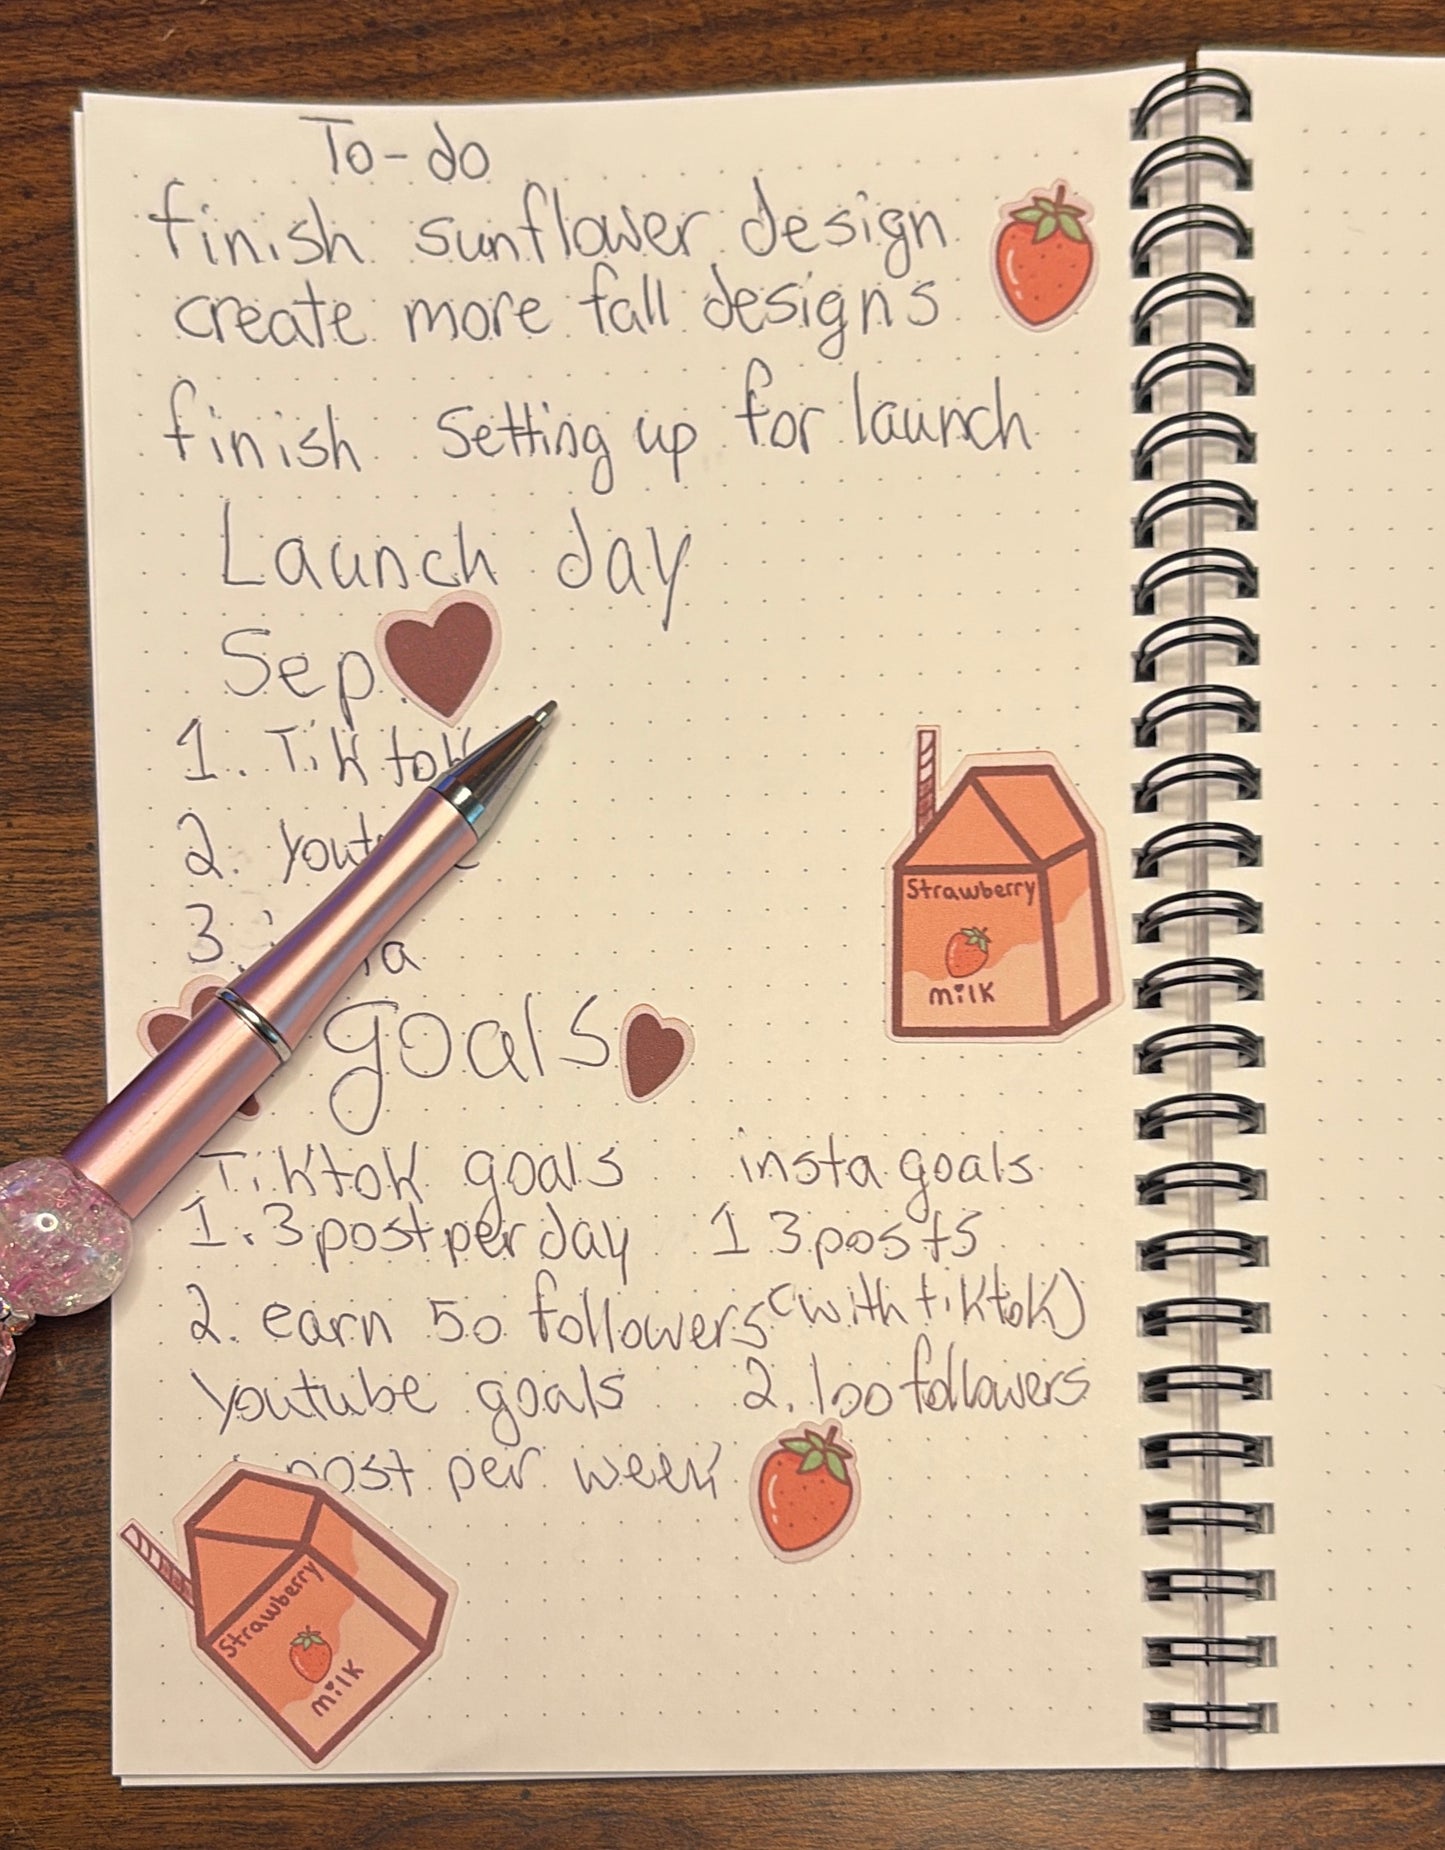 To-do
finish sunflower design
create more fall designs
finish setting up for launch
Launch day
Sep
1. Tiktok
2.
3.
goals
Tiktok goals
1. 3 post per day
2. earn 50 followers
Youtube goals
post per week
insta goals
1 3 posts
(with tiktok)
2. 100 followers
Strawberry
milk
Strawberry
milk